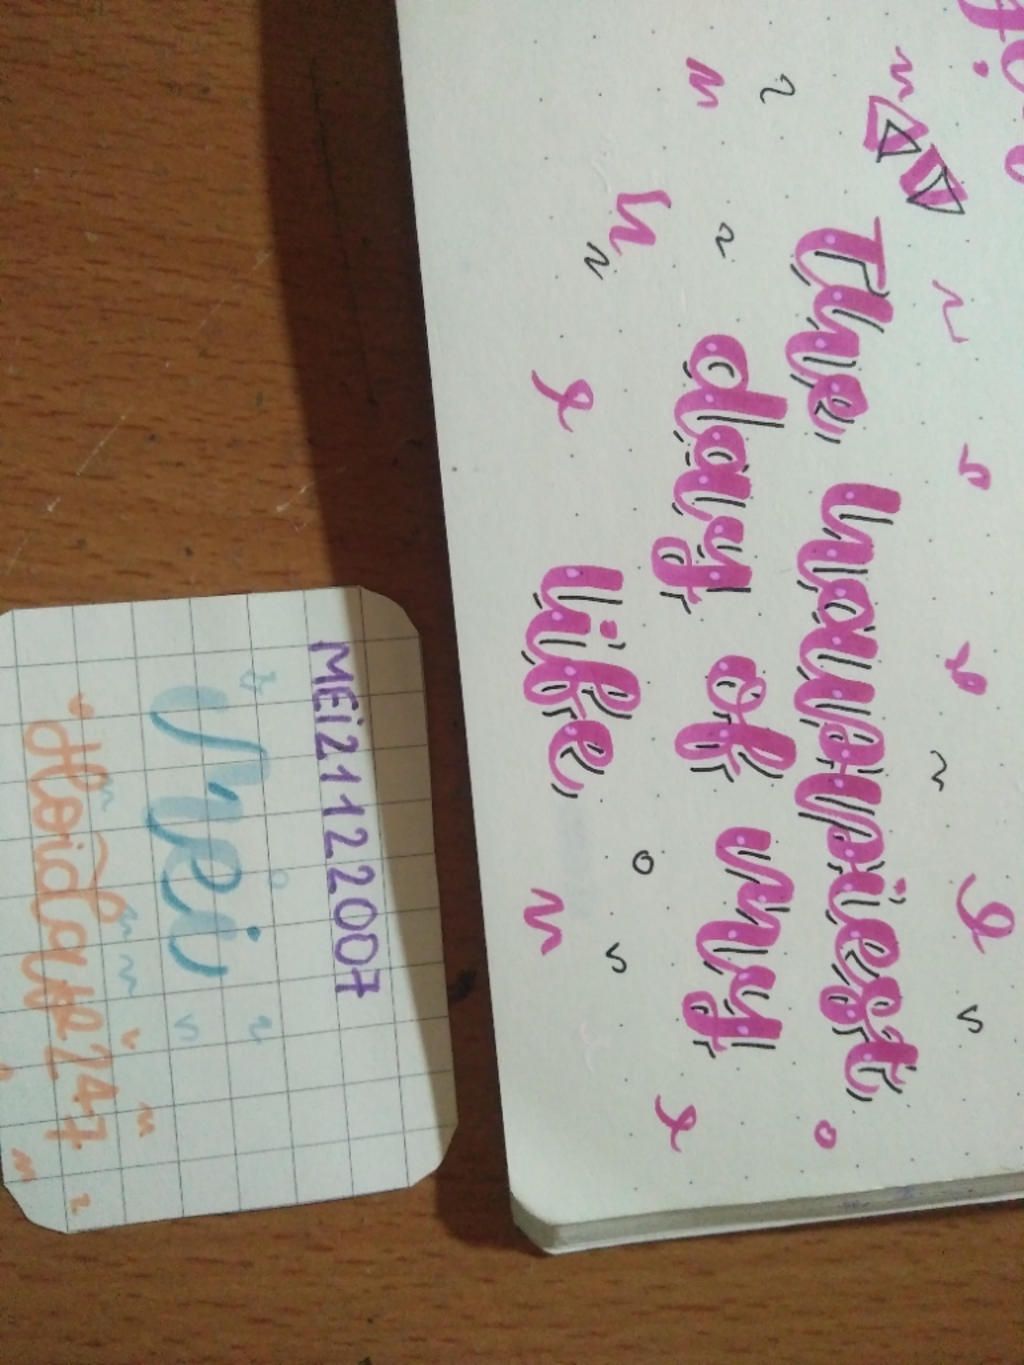 The happiest
day of my
life
MEi21122007
Mei
Hoidap247